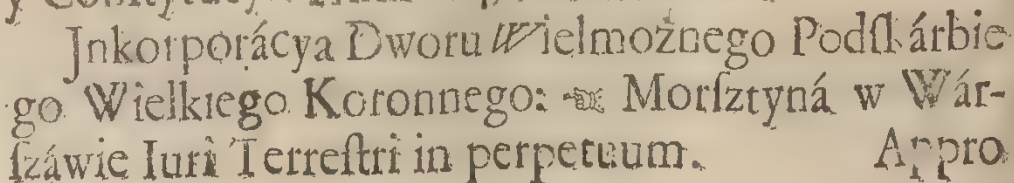 Jnkorporácya Dworu Wielmożnego Podſkárbie
go Wielkiego Koronnego: ☜ Morſztyná w Wár-
ſzáwie Iuri Terreſtri in perpetuum. Appro